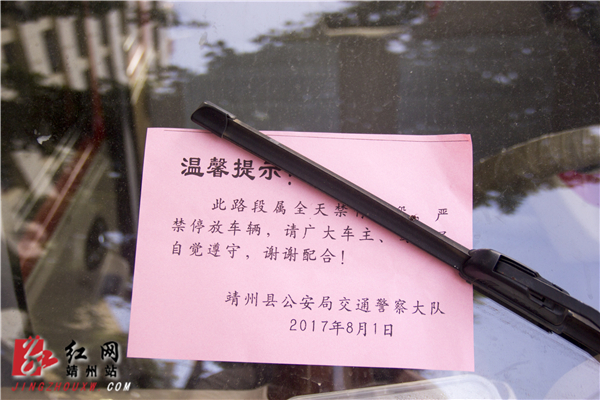 温馨提示!
此路段属全天禁 严
禁停放车辆,请广大车主、
自觉遵守,谢谢配合!
靖州县公安局交通警察大队
2017年8月1日
红网
靖州站
JINGZHOUZW.COM